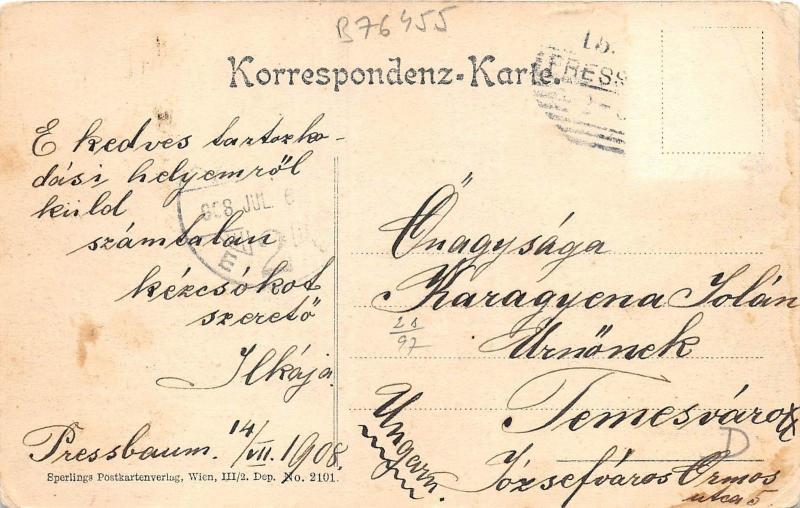 B76455
Korrespondenz-Karte.
PRESS
E kedves tartozko-
dási helyemről
küld
számtalan
kézcsókot
szerető
Ilkája
Pressbaum. 14/VII. 1908.
908 JUL 6
Őnagysága
Karagyena Jolán
Urnőnek
Temesvár
Józsefváros Ormos
utca 5
Ungarn.
21
97
D
Sperlings Postkartenverlag, Wien, III/2. Dep. No. 2101.